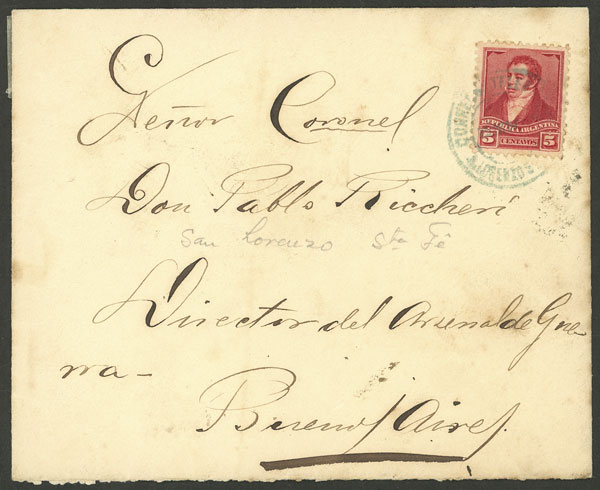 Señor Coronel
Don Pablo Riccheri
San Lorenzo Sta Fé
Director del Arsenal de Gue
rra-
Buenos Aires.
REPUBLICA ARGENTINA
5 CENTAVOS 5
CORREOS
S. LORENZO